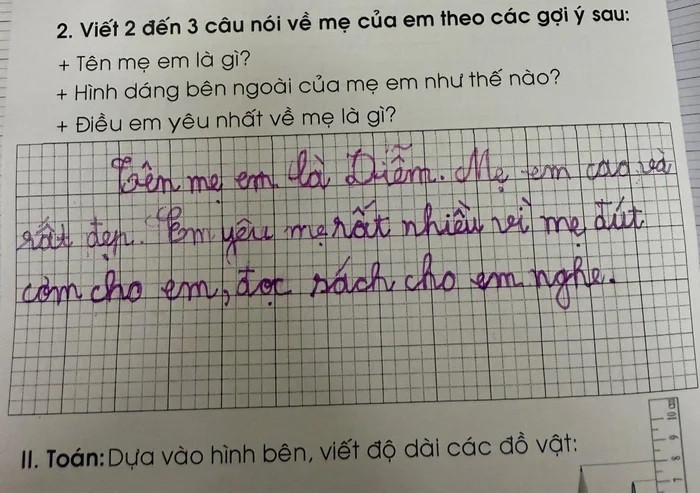 2. Viết 2 đến 3 câu nói về mẹ của em theo các gợi ý sau:
+ Tên mẹ em là gì?
+ Hình dáng bên ngoài của mẹ em như thế nào?
+ Điều em yêu nhất về mẹ là gì?
Tên mẹ em là Diễm. Mẹ em cao và
rất đẹp. Em yêu mẹ rất nhiều vì mẹ đút
cơm cho em, đọc sách cho em nghe.
II. Toán: Dựa vào hình bên, viết độ dài các đồ vật:
7 8 9 10 cm